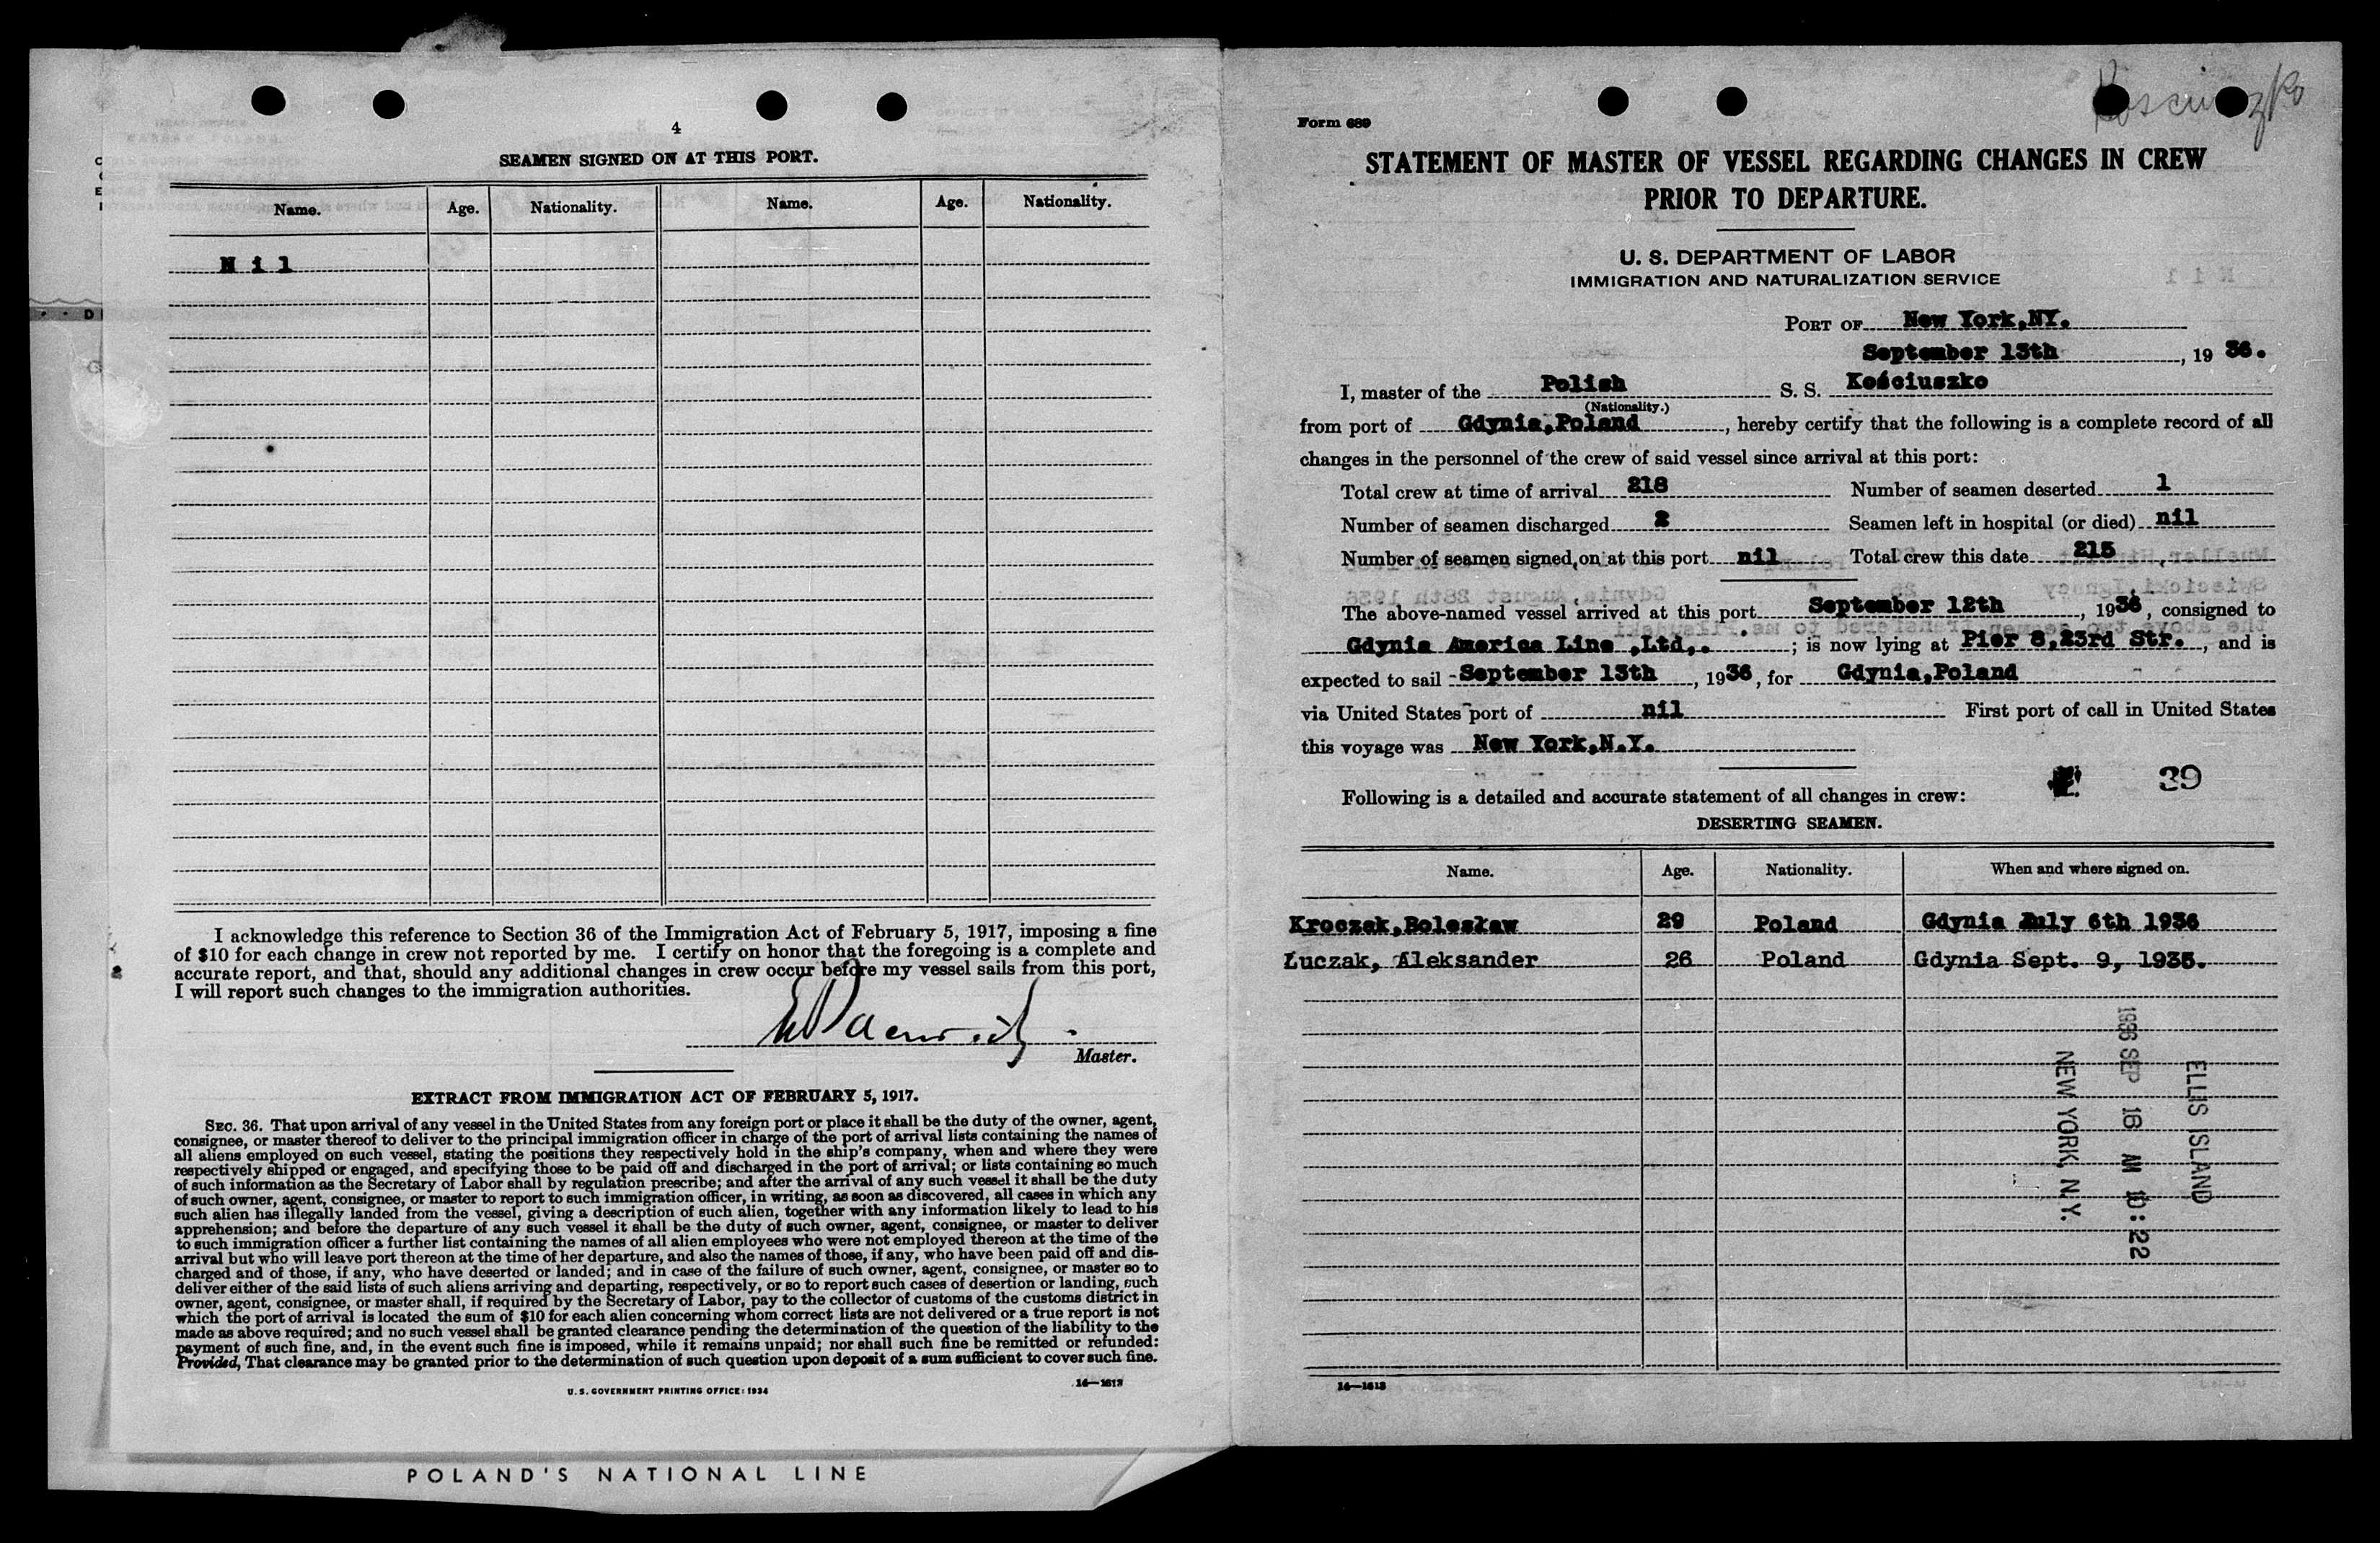 4
SEAMEN SIGNED ON AT THIS PORT.
Name. Age. Nationality. Name. Age. Nationality.
Nil
I acknowledge this reference to Section 36 of the Immigration Act of February 5, 1917, imposing a fine
of $10 for each change in crew not reported by me. I certify on honor that the foregoing is a complete and
accurate report, and that, should any additional changes in crew occur before my vessel sails from this port,
I will report such changes to the immigration authorities.
Master.
EXTRACT FROM IMMIGRATION ACT OF FEBRUARY 5, 1917.
SEC. 36. That upon arrival of any vessel in the United States from any foreign port or place it shall be the duty of the owner, agent,
consignee, or master thereof to deliver to the principal immigration officer in charge of the port of arrival lists containing the names of
all aliens employed on such vessel, stating the positions they respectively hold in the ship's company, when and where they were
respectively shipped or engaged, and specifying those to be paid off and discharged in the port of arrival; or lists containing so much
of such information as the Secretary of Labor shall by regulation prescribe; and after the arrival of any such vessel it shall be the duty
of such owner, agent, consignee, or master to report to such immigration officer, in writing, as soon as discovered, all cases in which any
such alien has illegally landed from the vessel, giving a description of such alien, together with any information likely to lead to his
apprehension; and before the departure of any such vessel it shall be the duty of such owner, agent, consignee, or master to deliver
to such immigration officer a further list containing the names of all alien employees who were not employed thereon at the time of the
arrival but who will leave port thereon at the time of her departure, and also the names of those, if any, who have been paid off and dis-
charged and of those, if any, who have deserted or landed; and in case of the failure of such owner, agent, consignee, or master so to
deliver either of the said lists of such aliens arriving and departing, respectively, or so to report such cases of desertion or landing, such
owner, agent, consignee, or master shall, if required by the Secretary of Labor, pay to the collector of customs of the customs district in
which the port of arrival is located the sum of $10 for each alien concerning whom correct lists are not delivered or a true report is not
made as above required; and no such vessel shall be granted clearance pending the determination of the question of the liability to the
payment of such fine, and, in the event such fine is imposed, while it remains unpaid; nor shall such fine be remitted or refunded:
Provided, That clearance may be granted prior to the determination of such question upon deposit of a sum sufficient to cover such fine.
U. S. GOVERNMENT PRINTING OFFICE: 1934 14—1613
POLAND'S NATIONAL LINE
Kosciuszko
Form 689
STATEMENT OF MASTER OF VESSEL REGARDING CHANGES IN CREW
PRIOR TO DEPARTURE.
U. S. DEPARTMENT OF LABOR
IMMIGRATION AND NATURALIZATION SERVICE
PORT OF New York,NY.
September 13th, 19 36.
I, master of the Polish S. S. Kościuszko
(Nationality.)
from port of Gdynia,Poland, hereby certify that the following is a complete record of all
changes in the personnel of the crew of said vessel since arrival at this port:
Total crew at time of arrival 218 Number of seamen deserted 1
Number of seamen discharged 2 Seamen left in hospital (or died) nil
Number of seamen signed on at this port nil Total crew this date 215
The above-named vessel arrived at this port September 12th, 1936, consigned to
Gdynia America Line ,Ltd,. ; is now lying at Pier 8,23rd Str., and is
expected to sail September 13th, 1936, for Gdynia,Poland
via United States port of nil First port of call in United States
this voyage was New York,N.Y.
39
Following is a detailed and accurate statement of all changes in crew:
DESERTING SEAMEN.
Name. Age. Nationality. When and where signed on.
Kroczek,Bolesław 29 Poland Gdynia July 6th 1936
Łuczak, Aleksander 26 Poland Gdynia Sept. 9, 1935.
ELLIS ISLAND
1936 SEP 18 AM 10:22
NEW YORK, N.Y.
14—1613